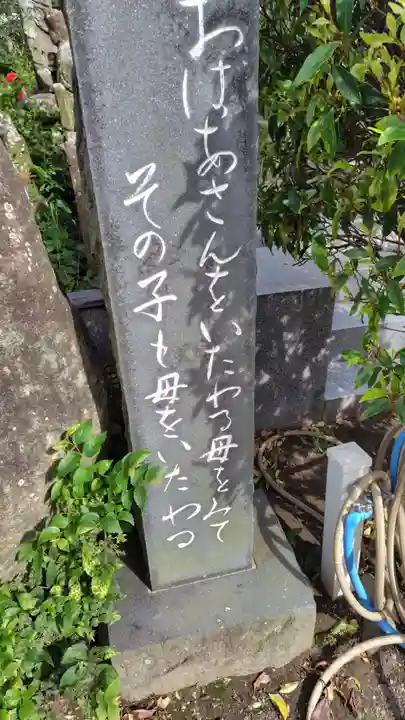 おばあさんをいたわる母をみて
その子も母をいたわる